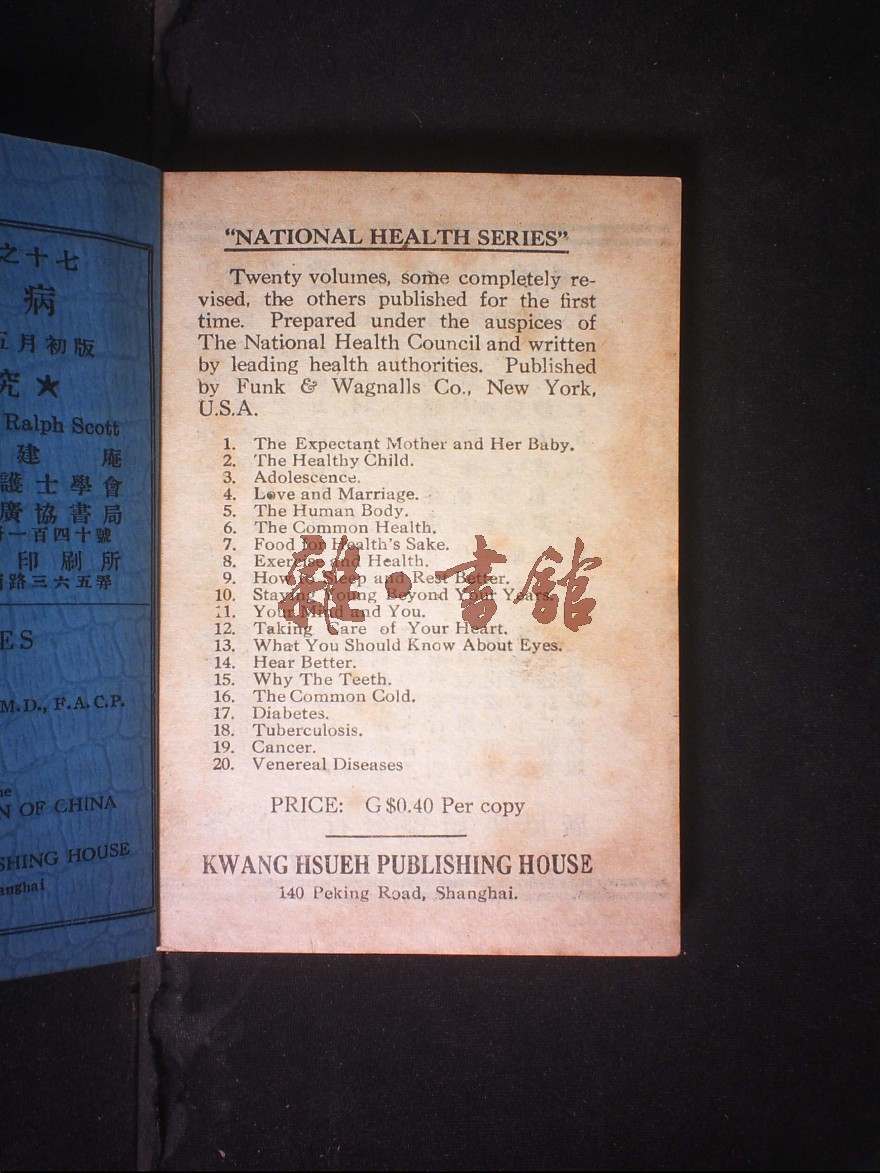 之十七
病
五月初版
究 ★
Ralph Scott
建 庵
護士學會
廣協書局
一百四十號
印刷所
路三六五弄
ES
M.D., F.A.C.P.
he
N OF CHINA
SHING HOUSE
anghai
"NATIONAL HEALTH SERIES"
Twenty volumes, some completely re-
vised, the others published for the first
time. Prepared under the auspices of
The National Health Council and written
by leading health authorities. Published
by Funk & Wagnalls Co., New York,
U.S.A.
1. The Expectant Mother and Her Baby.
2. The Healthy Child.
3. Adolescence.
4. Love and Marriage.
5. The Human Body.
6. The Common Health.
7. Food for Health's Sake.
8. Exercise and Health.
9. How to Sleep and Rest Better.
10. Staying Young Beyond Your Years.
11. Your Mind and You.
12. Taking Care of Your Heart.
13. What You Should Know About Eyes.
14. Hear Better.
15. Why The Teeth.
16. The Common Cold.
17. Diabetes.
18. Tuberculosis.
19. Cancer.
20. Venereal Diseases
雜·書館
PRICE: G$0.40 Per copy
KWANG HSUEH PUBLISHING HOUSE
140 Peking Road, Shanghai.